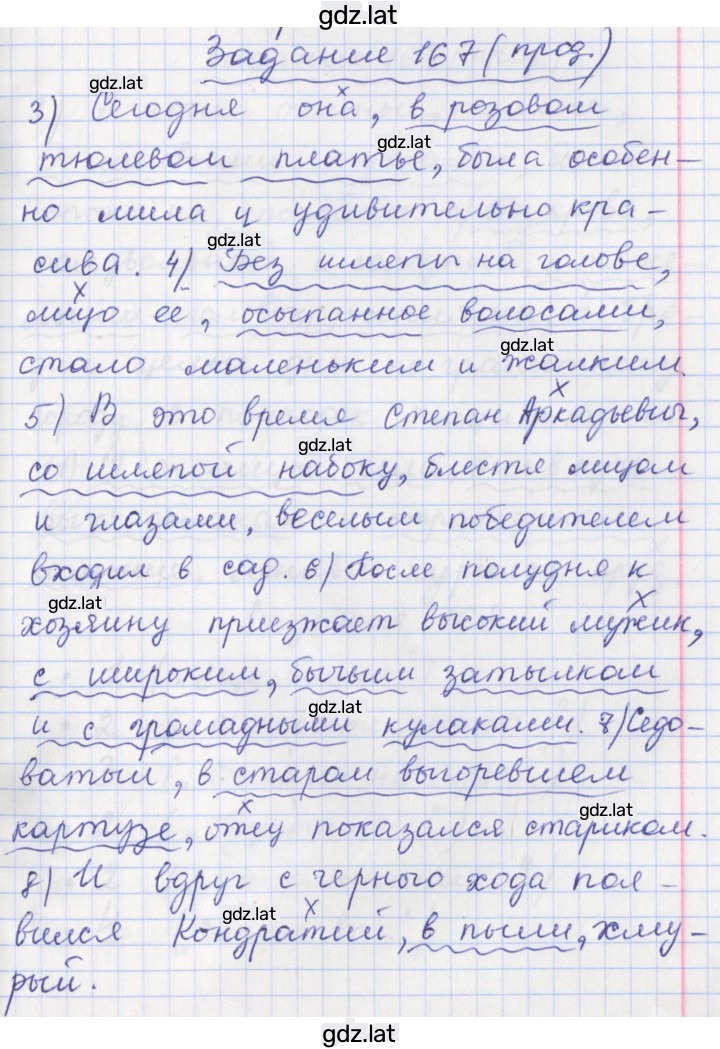 gdz.lat
Задание 167 (прод.)
gdz.lat
3) Сегодня она, в розовом
gdz.lat
тюлевом платье, была особен-
но мила и удивительно кра-
gdz.lat
сива. 4) Без шляпы на голове,
лицо её, осыпанное волосами,
gdz.lat
стало маленьким и жалким.
5) В это время Степан Аркадьевич,
gdz.lat
со шляпой набоку, блестя лицом
и глазами, веселым победителем
входил в сад. 6) После полудня к
gdz.lat
хозяину приезжает высокий мужик,
с широким, бычьим затылком
gdz.lat
и с громадными кулаками. 7) Седо-
ватый, в старом выгоревшем
gdz.lat
картузе, отец показался стариком.
8) И вдруг с черного хода поя-
gdz.lat
вился Кондратий, в пыли, хму-
рый.
gdz.lat